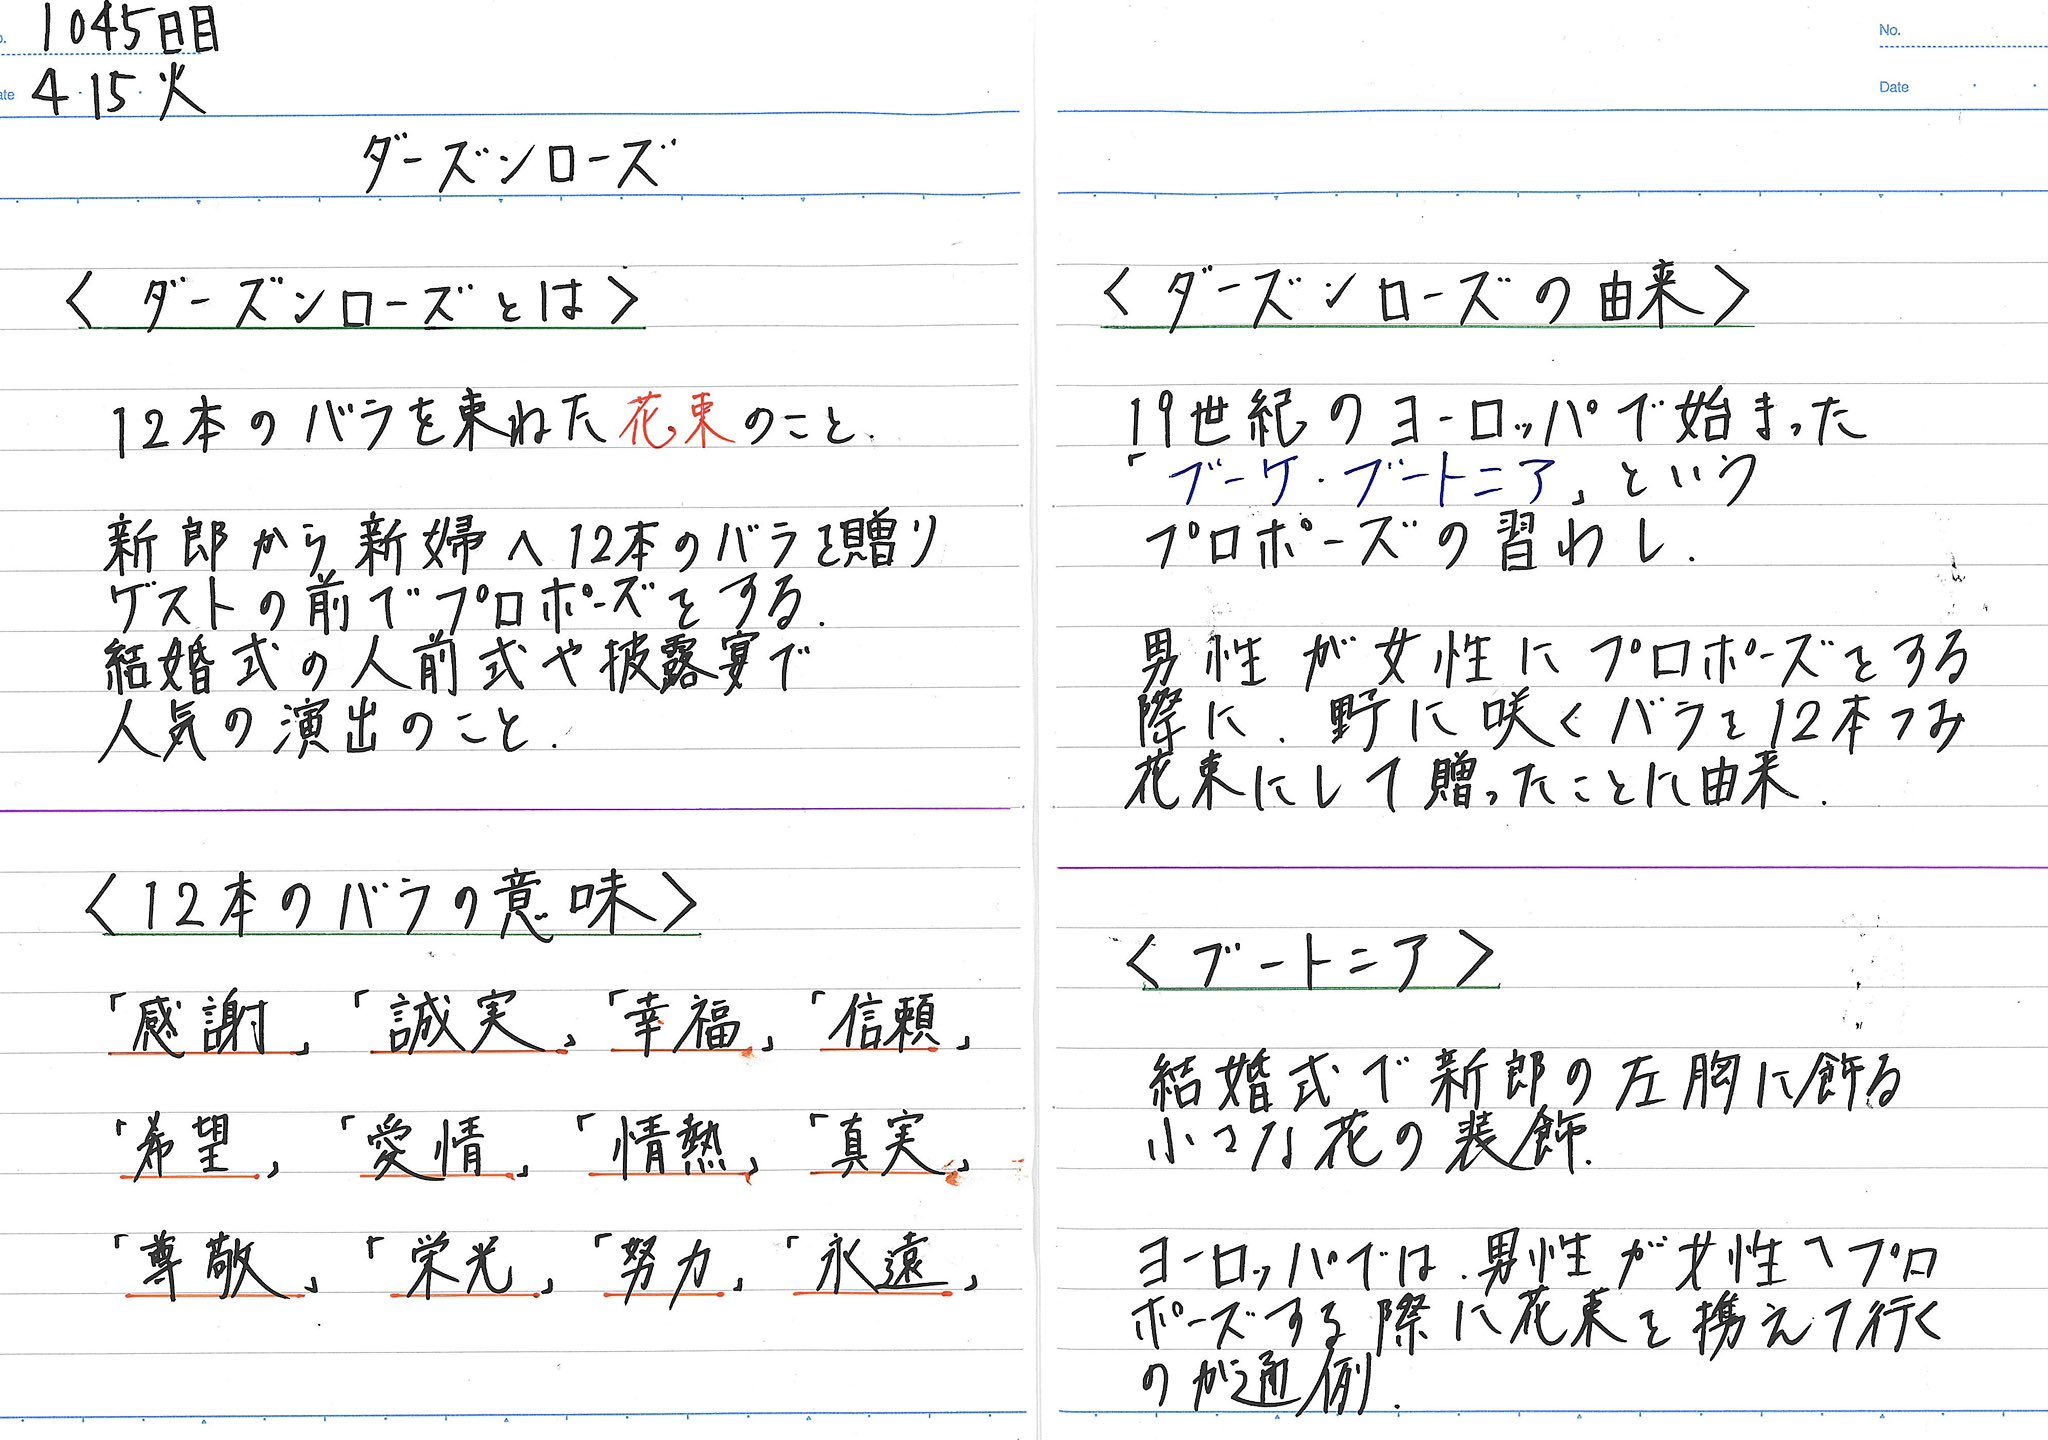 1045日目
4・15・火
ダーズンローズ
〈ダーズンローズとは〉
12本のバラを束ねた花束のこと.
新郎から新婦へ12本のバラを贈り
ゲストの前でプロポーズをする.
結婚式の人前式や披露宴で
人気の演出のこと.
〈12本のバラの意味〉
「感謝」 「誠実」 「幸福」 「信頼」
「希望」 「愛情」 「情熱」 「真実」
「尊敬」 「栄光」 「努力」 「永遠」
No.
Date
〈ダーズンローズの由来〉
19世紀のヨーロッパで始まった
「ブーケ・ブートニア」という
プロポーズの習わし.
男性が女性にプロポーズをする
際に.野に咲くバラを12本つみ
花束にして贈ったことに由来.
〈ブートニア〉
結婚式で新郎の左胸に飾る
小さな花の装飾.
ヨーロッパでは.男性が女性へプロ
ポーズする際に花束を携えて行く
のが通例.